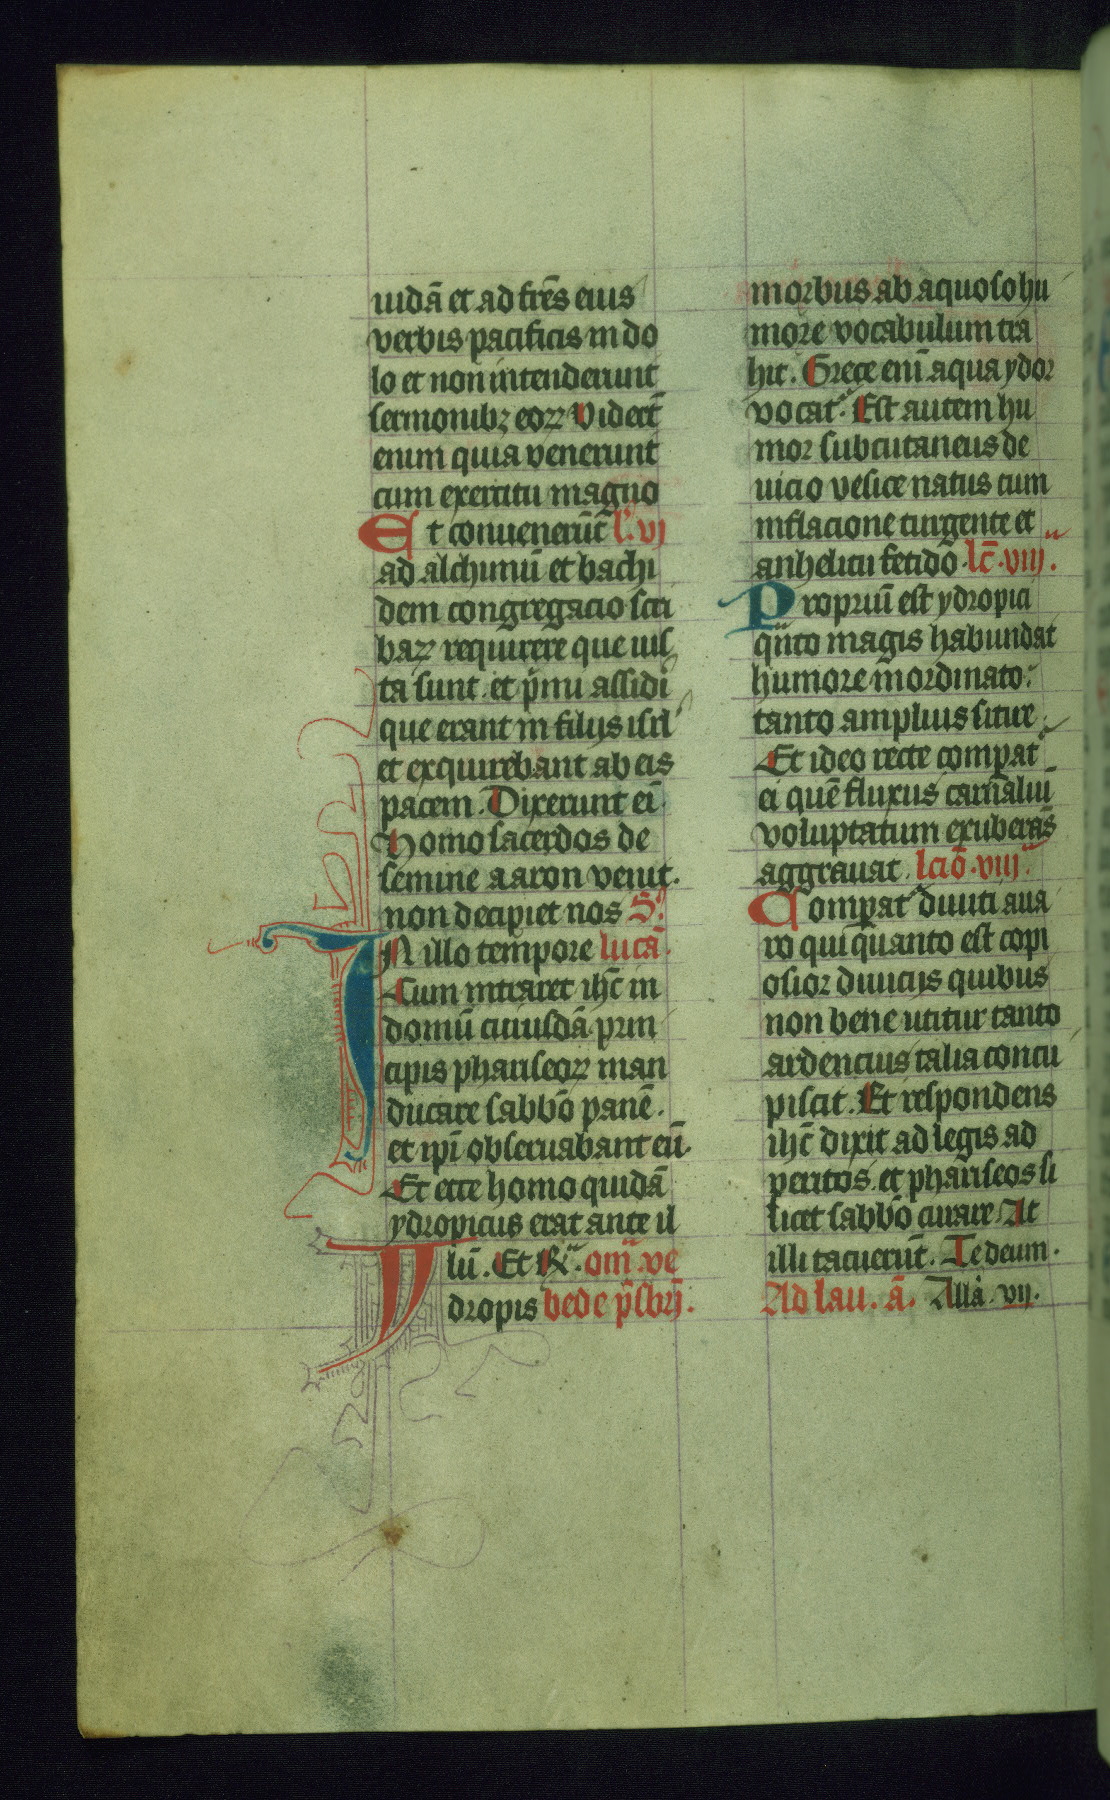 iudā et ad frēs eius
verbis pacificis in do
lo et non intenderunt
sermonibꝫ eoꝝ Videt̄
enim quia venerunt
cum exercitu magno
Et convenerūt l̄. vi
ad alchimū et bachi
dem congregacio scri
baꝝ requirere que ius
ta sunt. et p̄mi assidi
que erant in filijs isrl̄
et exquirebant ab eis
pacem. Dixerunt eī
Homo sacerdos de
semine aaron venit.
non decipiet nos S.
IN illo tempore lucā.
Cum intraret ihc̄ in
domū cuiusdā prin
cipis phariseoꝝ man
ducare sabbo̅ panē.
et ipi̅ observabant eū.
Et ecce homo quidā
ydropicus erat ante il
lū. Et R̄. om̄. ve
Ydropis bede p̄sbrj̄.
morbus ab aquoso hu
more vocabulum tra
hit. Grece enī aqua ydor
vocat᷑. Est autem hu
mor subcutaneus de
vicio vesice natus cum
inflacione turgente et
anhelitu fetido. lc̄. viii.
Propriū est ydropici
qn̄to magis habundat
humore inordinato.
tanto amplius sitire.
Et ideo recte compat᷑
ei quē fluxus carnaliū
voluptatum exuberās
aggravat. lcio̅. viii.
Compat᷑ diviti ava
ro qui quanto est copi
osior divicijs quibus
non bene utitur tanto
ardencius talia concu
piscit. Et respondens
ihc̄ dixit ad legis ad
peritos. et phariseos si
licet sabbo̅ curare At
illi tacuerūt. Te deum.
Ad lau. ā. Alla. vij.